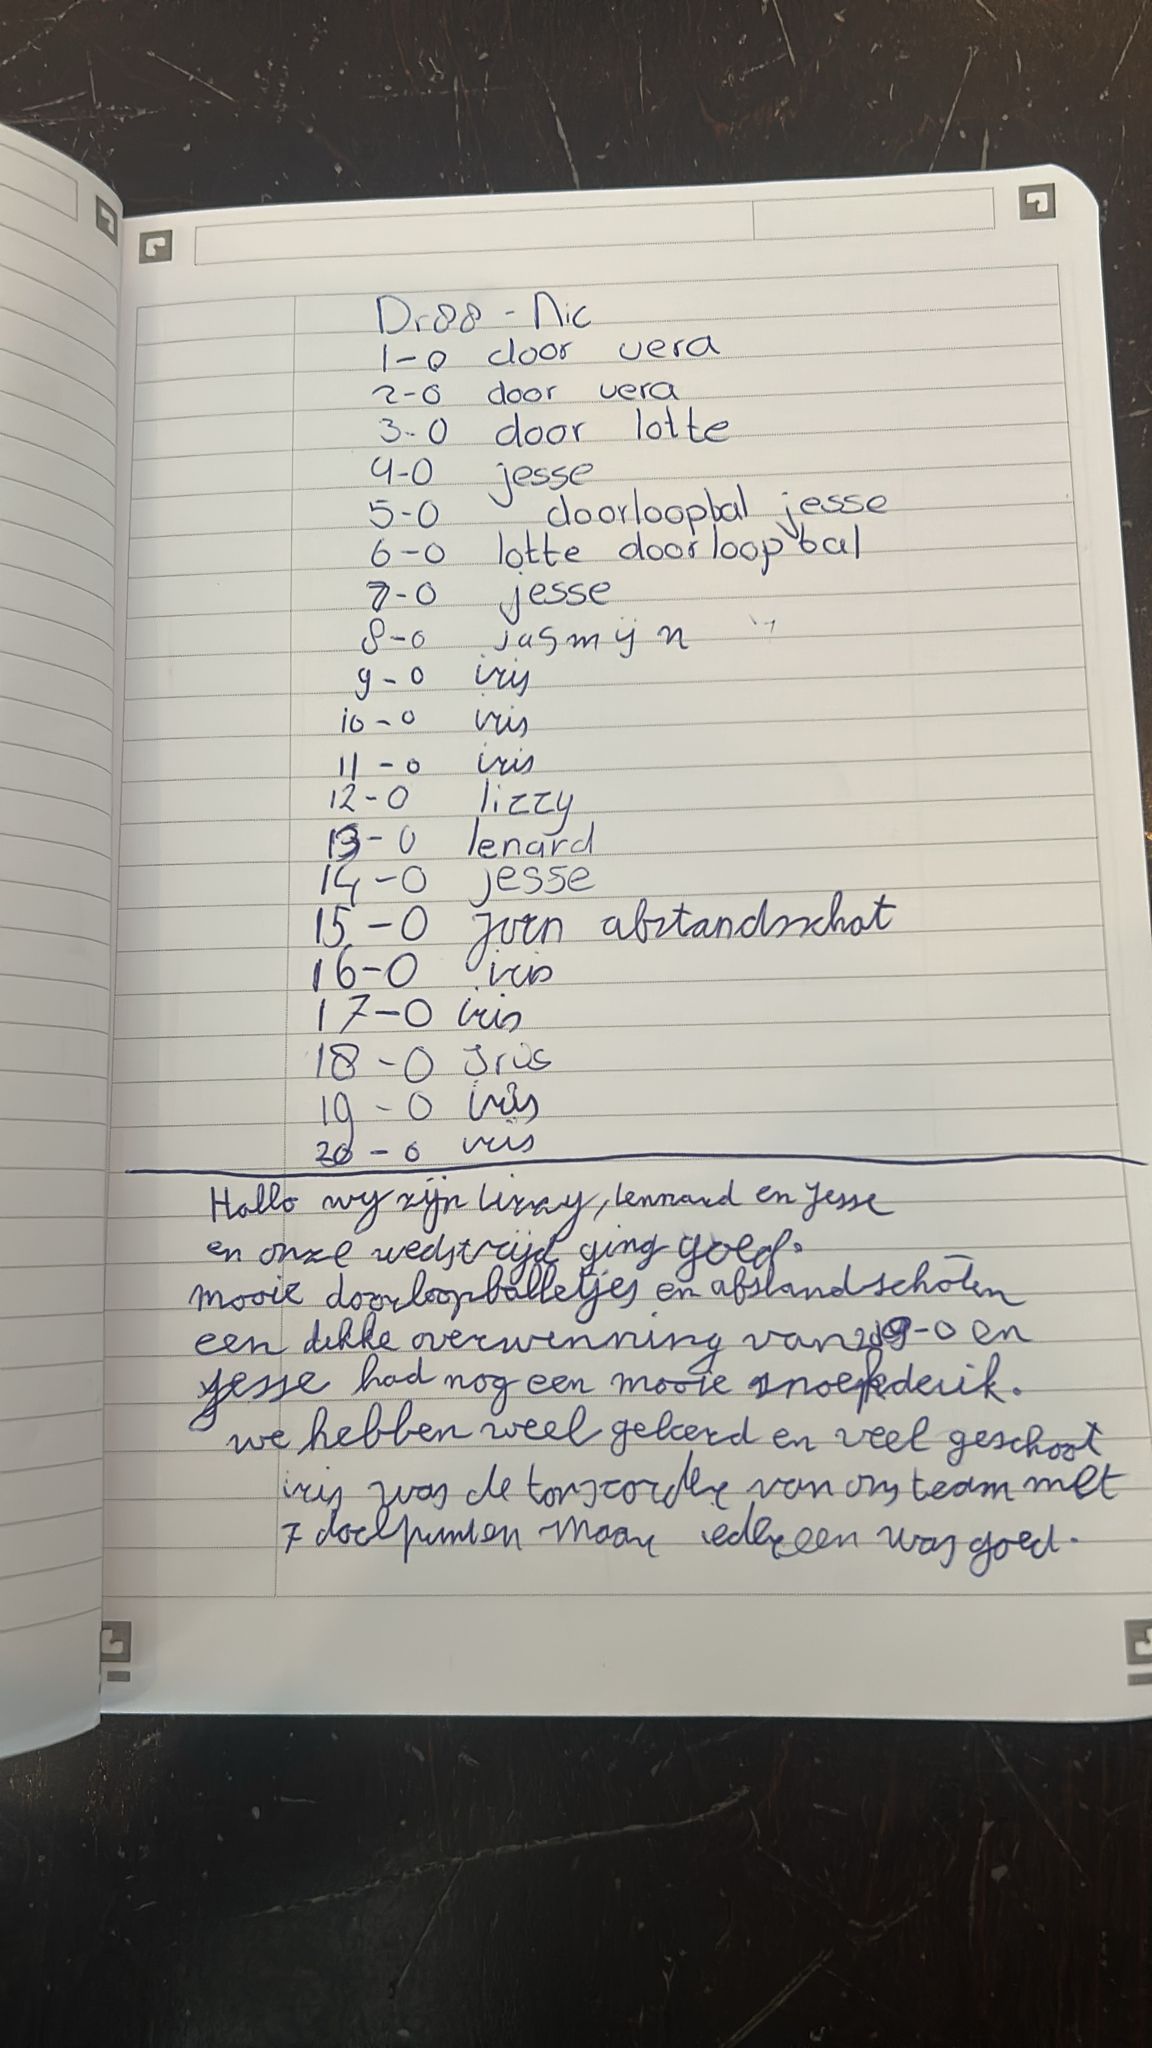 Dr88 - Nic
1-0 door vera
2-0 door vera
3-0 door lotte
4-0 jesse
5-0 doorloopbal jesse
6-0 lotte doorloopbal
7-0 jesse
8-0 jasmijn
9-0 iris
10-0 iris
11-0 iris
12-0 lizzy
13-0 lenard
14-0 jesse
15-0 jorn afstandsschot
16-0 iris
17-0 iris
18-0 Iris
19-0 iris
20-0 iris
Hallo wij zijn Lizzy, lennard en Jesse
en onze wedstrijd ging goed.
mooie doorloopballetjes en afstandschoten
een dikke overwinning van 20-0 en
jesse had nog een mooie
we hebben veel geleerd en veel geschoot
iris was de van ons team met
7 doelpunten maar iedereen was goed.